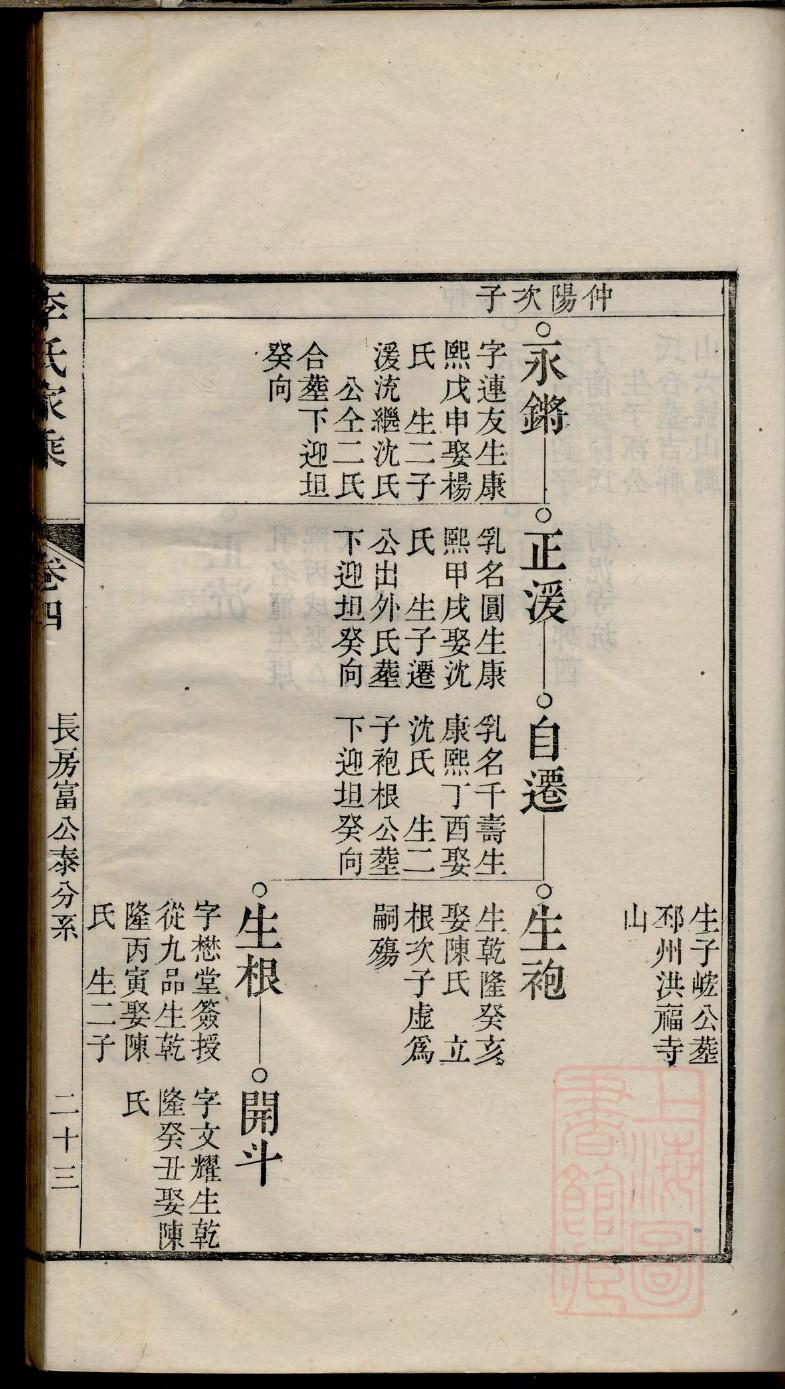 仲陽次子
生子嵯公塟
邳州洪福寺
山
永鏘
字連友生康
熙戊申娶楊
氏　生二子
湲流繼沈氏
公仝二氏
合塟下迎坦
癸向
正湲
乳名圓生康
熙甲戌娶沈
氏　生子遷
公出外氏塟
下迎坦癸向
自遷
乳名千壽生
康熙丁酉娶
沈氏　生二
子袍根公塟
下迎坦癸向
生袍
生乾隆癸亥
娶陳氏　立
根次子虛為
嗣殤
生根
字懋堂簽授
從九品生乾
隆丙寅娶陳
氏　生二子
開斗
字文耀生乾
隆癸丑娶陳
氏
李氏家乘
卷四
長房富公泰分系
二十三
上海圖
書館藏